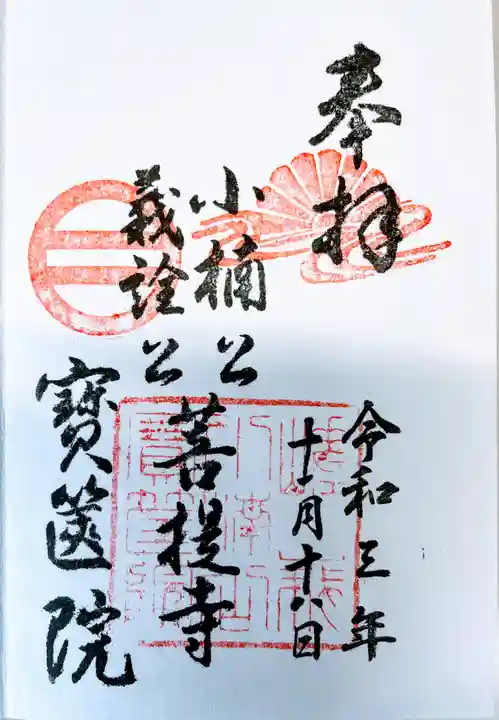 奉拝
令和三年
十一月十八日
小楠公
義詮公
菩提寺
寶篋院